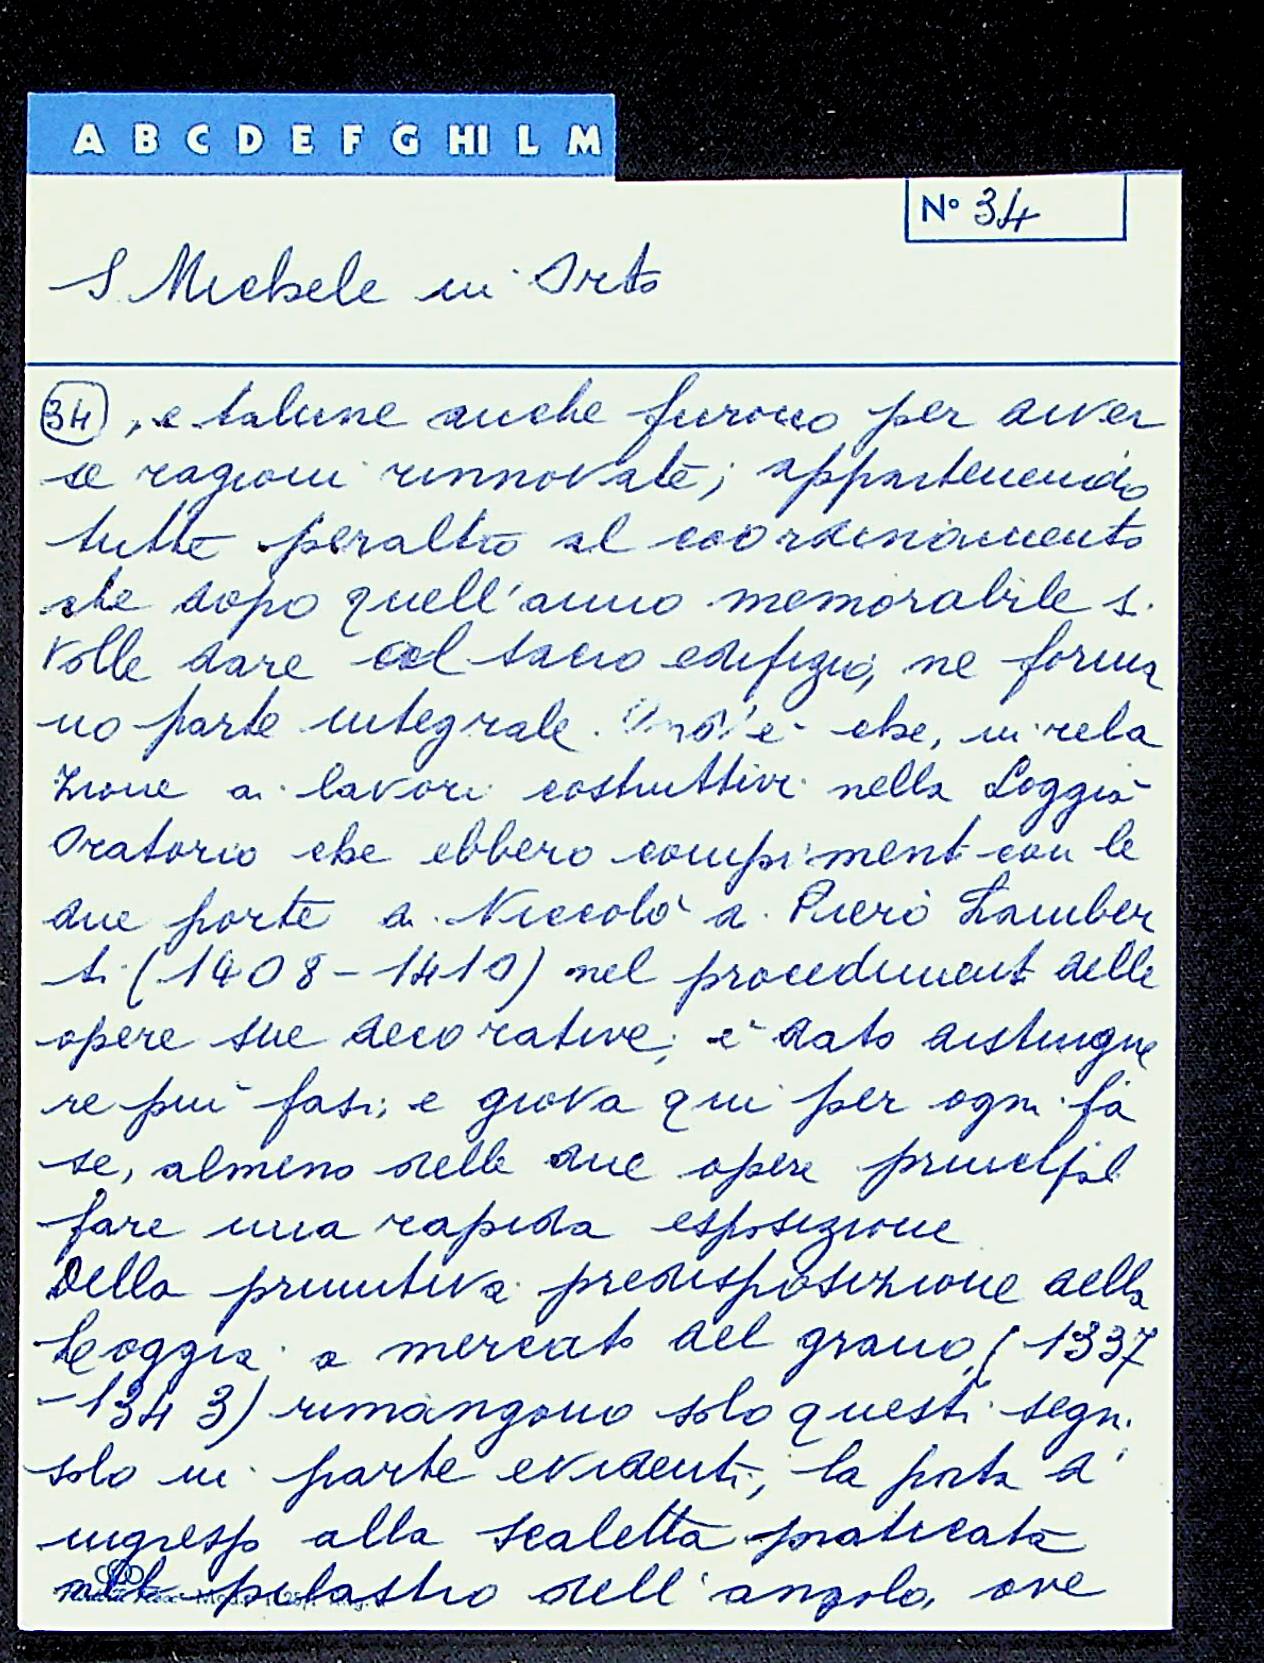 A B C D E F G HI L M
N° 34
S. Michele in Orto
34, e talune anche furono per diver
se ragioni rinnovate; appartenendo
tutte peraltro al coordinamento
che dopo quell'anno memorabile si
volle dare al sacro edifizio, ne forma
no parte integrale. Ond'è che, in rela
zione ai lavori costruttivi nella Loggia
Oratorio che ebbero compiment con le
due porte di Niccolò di Piero Lamber
ti (1408-1410) nel procediment delle
opere sue decorative, è dato distingue
re più fasi; e giova qui per ogni fa
se, almeno delle due opere principal
fare una rapida esposizione
Della primitiva predisposizione della
Loggia a mercato del grano, (1337
-1343) rimangono solo questi segni
solo in parte evidenti, la porta d'
ingresso alla scaletta praticata
nel pilastro dell'angolo, ove